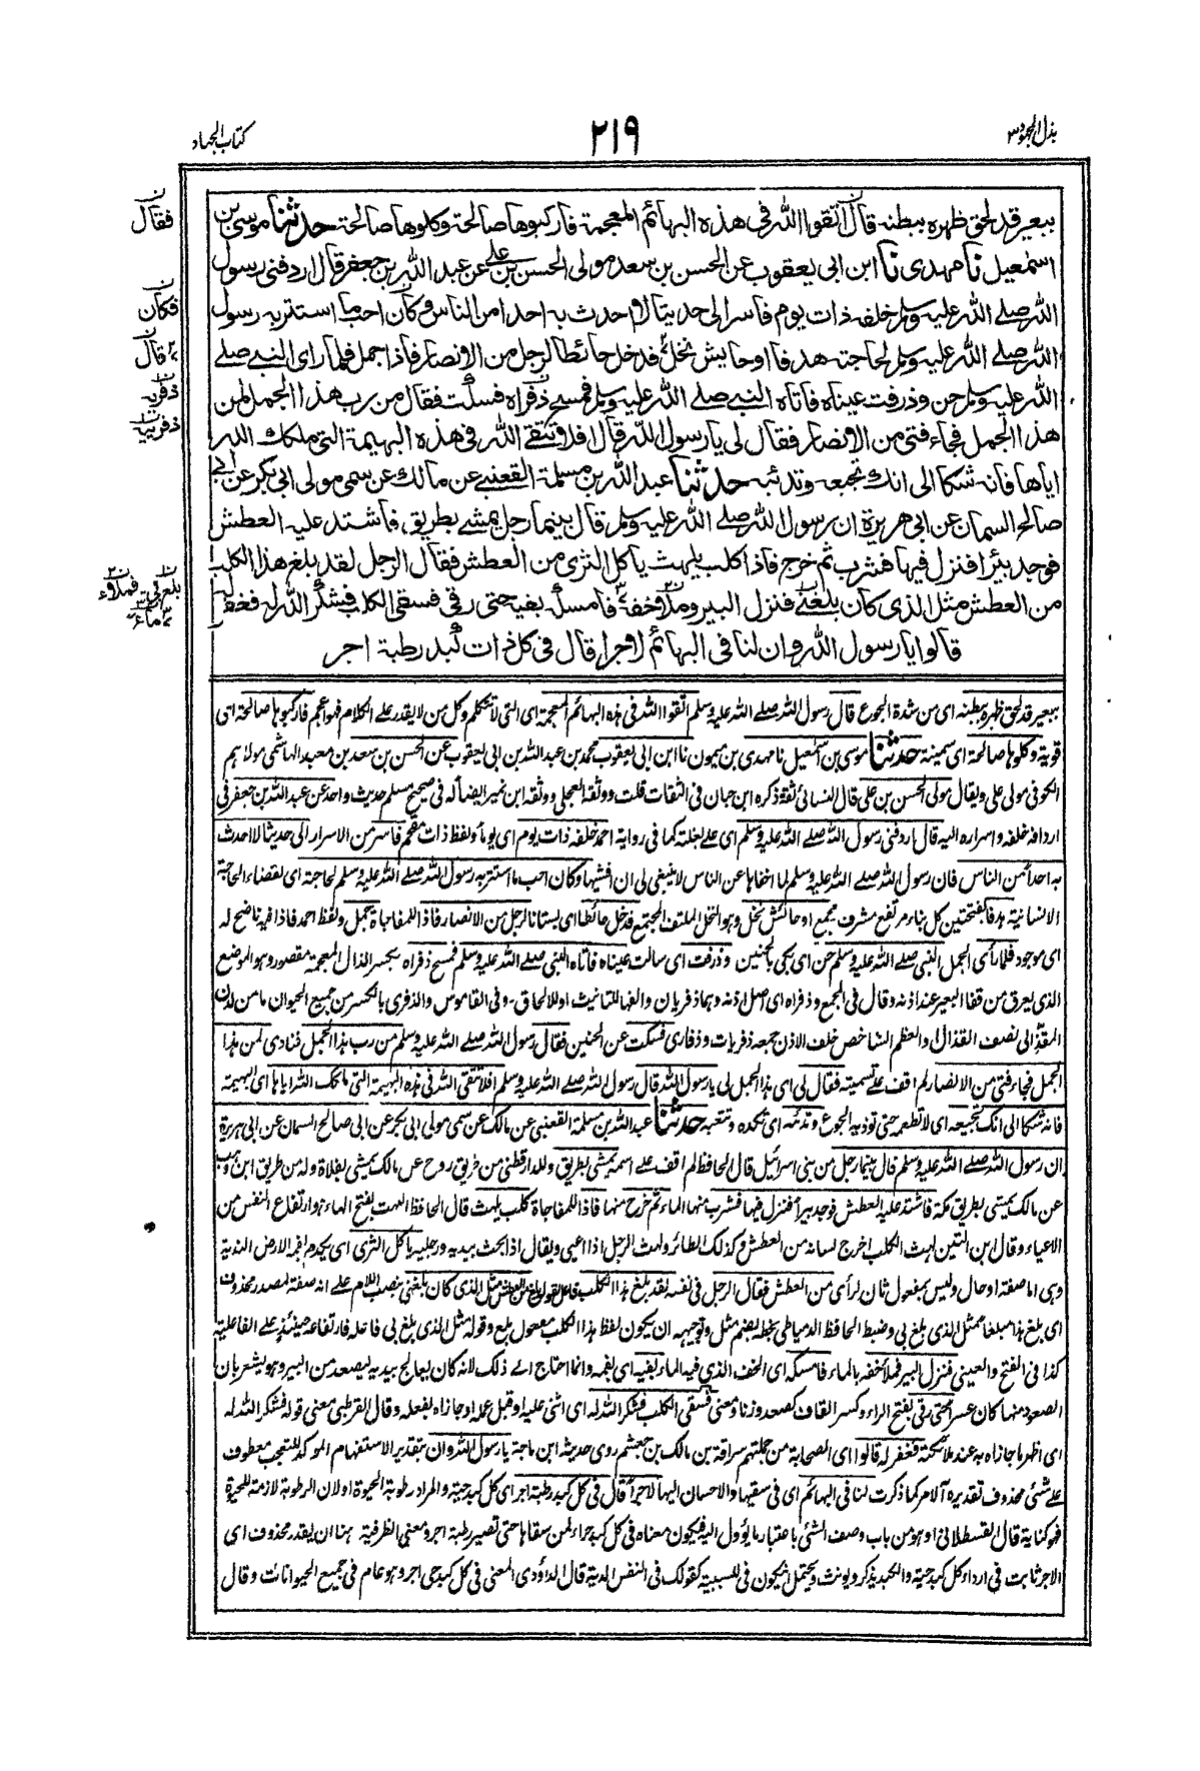 بذل المجهود ٣
٢١٩
كتاب الجهاد
ببعير قد لحق ظهره ببطنه قال اتقوا الله في هذه البهائم المعجمة فاركبوها صالحة وكلوها صالحة حدثنا موسى بن
اسمعيل نا مهدى نا ابن ابى يعقوب عن الحسن بن سعد مولى الحسن بن على عن عبد الله بن جعفر قال اردفنى رسول
الله صلى الله عليه وسلم خلفه ذات يوم فاسر الى حديثا لا احدث به احدا من الناس وكان احب ما استتر به رسول
الله صلى الله عليه وسلم لحاجته هدفا او حايش نخل فدخل حائطا لرجل من الانصار فاذا جمل فلما راى النبى صلى
الله عليه وسلم حن وذرفت عيناه فاتاه النبى صلى الله عليه وسلم فمسح ذفراه فسكت فقال من رب هذا الجمل لمن
هذا الجمل فجاء فتى من الانصار فقال لى يا رسول الله قال افلا تتقى الله فى هذه البهيمة التى ملكك الله
اياها فانه شكا الى انك تجيعه وتدئبه حدثنا عبد الله بن مسلمة القعنبى عن مالك عن سمى مولى ابى بكر عن ابى
صالح السمان عن ابى هريرة ان رسول الله صلى الله عليه وسلم قال بينما رجل يمشى بطريق فاشتد عليه العطش
فوجد بئرا فنزل فيها فشرب ثم خرج فاذا كلب يلهث ياكل الثرى من العطش فقال الرجل لقد بلغ هذا الكلب
من العطش مثل الذى كان بلغنى فنزل البير وملأ خفه فامسكه بفيه حتى رقى فسقى الكلب فشكر الله له فغفر له
قالوا يا رسول الله وان لنا فى البهائم لاجرا قال فى كل ذات كبد رطبة اجر
فقال
فكان
قال
ذفريه
ذفرييه
بلغ بى فملأ
ماء
ببعير قد لحق ظهره ببطنه اى من شدة الجوع قال رسول الله صلى الله عليه وسلم اتقوا الله فى هذه البهائم المعجمة اى التى لا تتكلم وكل من لا يقدر على الكلام فهو اعجم فاركبوها صالحة اى
قوية وكلوها صالحة اى سمينة حدثنا موسى بن اسمعيل نا مهدى بن ميمون نا ابن ابى يعقوب محمد بن عبد الله بن ابى يعقوب عن الحسن بن سعد بن معبد الهاشمى مولاهم
الكوفى مولى على ويقال مولى الحسن بن على قال النسائى ثقة وذكره ابن حبان فى الثقات قلت ووثقه العجلى ووثقه ابن نمير ايضا له فى صحيح مسلم حديث واحد عن عبد الله بن جعفر فى
اردافه خلفه واسراره اليه قال اردفنى رسول الله صلى الله عليه وسلم اى على بغلته كما فى رواية احمد خلفه ذات يوم اى يوما ولفظ ذات مقحم فاسر من الاسرار الى حديثا لا احدث
به احدا من الناس فان رسول الله صلى الله عليه وسلم لما اخفاها عن الناس لا ينبغى لى ان افشيها وكان احب ما استتر به رسول الله صلى الله عليه وسلم لحاجته اى لقضاء الحاجة
الانسانية هدفا بفتحتين كل بناء مرتفع مشرف مجمع او حائش نخل وهو النخل الملتف المجتمع فدخل حائطا اى بستانا لرجل من الانصار فاذا للمفاجاة جمل ولفظ احمد فاذا فيه ناضح له
اى موجود فلما رأى الجمل النبى صلى الله عليه وسلم حن اى بكى بالحنين وذرفت اى سالت عيناه فاتاه النبى صلى الله عليه وسلم فمسح ذفراه بكسر الذال المعجمة مقصور وهو الموضع
الذى يعرق من قفا البعير عند اذنه وقال فى المجمع وذفراه اى اصل اذنه وهما ذفريان والفها للتانيث او للالحاق وفى القاموس والذفرى بالكسر من جميع الحيوان ما من لدن
المقذ الى نصف القذال او العظم الشاخص خلف الاذن جمعه ذفريات وذفارى فسكت عن الحنين فقال رسول الله صلى الله عليه وسلم من رب هذا الجمل فنادى لمن هذا
الجمل فجاء فتى من الانصار لم اقف على تسميته فقال لى اى هذا الجمل لى يا رسول الله قال رسول الله صلى الله عليه وسلم افلا تتقى الله فى هذه البهيمة التى ملكك الله اياها اى البهيمة
فانه شكا الى انك تجيعه اى لا تطعمه حتى توذيه الجوع وتدئبه اى تكده وتتعبه حدثنا عبد الله بن مسلمة القعنبى عن مالك عن سمى مولى ابى بكر عن ابى صالح السمان عن ابى هريرة
ان رسول الله صلى الله عليه وسلم قال بينما رجل من بنى اسرائيل قال الحافظ لم اقف على اسمه يمشى بطريق وللدارقطنى من طريق روح عن مالك يمشى بفلاة وله من طريق ابن وهب
عن مالك يمشى بطريق مكة فاشتد عليه العطش فوجد بيرا فنزل فيها فشرب منها الماء ثم خرج منها فاذا للمفاجاة كلب يلهث قال الحافظ اللهث بفتح الهاء هو ارتفاع النفس من
الاعياء وقال ابن التين لهث الكلب اخرج لسانه من العطش وكذلك الطائر ولهث الرجل اذا اعيى ويقال اذا بحث بيديه ورجليه ياكل الثرى اى يكدم بفمه الارض الندية
وهى اما صفة او حال وليس بمفعول ثان لرأى من العطش فقال الرجل فى نفسه لقد بلغ هذا الكلب من العطش مثل الذى كان بلغنى بنصب اللام على انه صفة لمصدر محذوف
اى بلغ هذا مبلغا مثل الذى بلغ بى وضبط الحافظ الدمياطى بخطه بضم مثل وتوجيهه ان يكون لفظ هذا الكلب مفعول بلغ وقوله مثل الذى بلغ بى فاعله فارتفاعه حينئذ على الفاعلية
كذا فى الفتح والعينى فنزل البير فملأ خفه بالماء فامسكه اى الخف الذى فيه الماء بفيه اى بفمه وانما احتاج الى ذلك لانه كان يعالج بيديه ليصعد من البير وهو يشعر بان
الصعود منها كان عسرا حتى رقى بفتح الراء وكسر القاف كصعد وزنا ومعنى فسقى الكلب فشكر الله له اى اثنى عليه او قبل عمله او جازاه بفعله وقال القرطبى معنى قوله فشكر الله له
اى اظهر ما جازاه به عند ملائكته فغفر له قالوا اى الصحابة من جملتهم سراقة بن مالك بن جعشم روى حديثه ابن ماجة يا رسول الله وان بتقدير الاستفهام الموكد للتعجب معطوف
على شئى محذوف تقديره آلامر كما ذكرت لنا فى البهائم اى فى سقيها والاحسان اليها لاجرا قال فى كل كبد رطبة اجر اى كل كبد حية والمراد رطوبة الحيوة او لان الرطوبة لازمة للحيوة
فهو كناية قال القسطلانى او هو من باب وصف الشئى باعتبار ما يؤول اليه فيكون معناه فى كل كبد حراء لمن سقاها حتى تصير رطبة اجر ومعنى الظرفية هنا ان يقدر محذوف اى
الاجر ثابت فى ارواء كل كبد حية والكبد يذكر ويونث ويحتمل ان يكون فى للسببية كقولك فى النفس الدية قال الداؤدى المعنى فى كل كبد حى اجر وهو عام فى جميع الحيوانات وقال